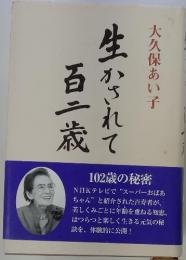 大久保あい子
生かされて
百二歳
102歳の秘密
NHKテレビで“スーパーおばあ
ちゃん”と紹介された百寿者が、
苦しくみごとに年齢を重ねる知恵、
はつらつと楽しく生きる元気の秘
訣を、体験的に公開!